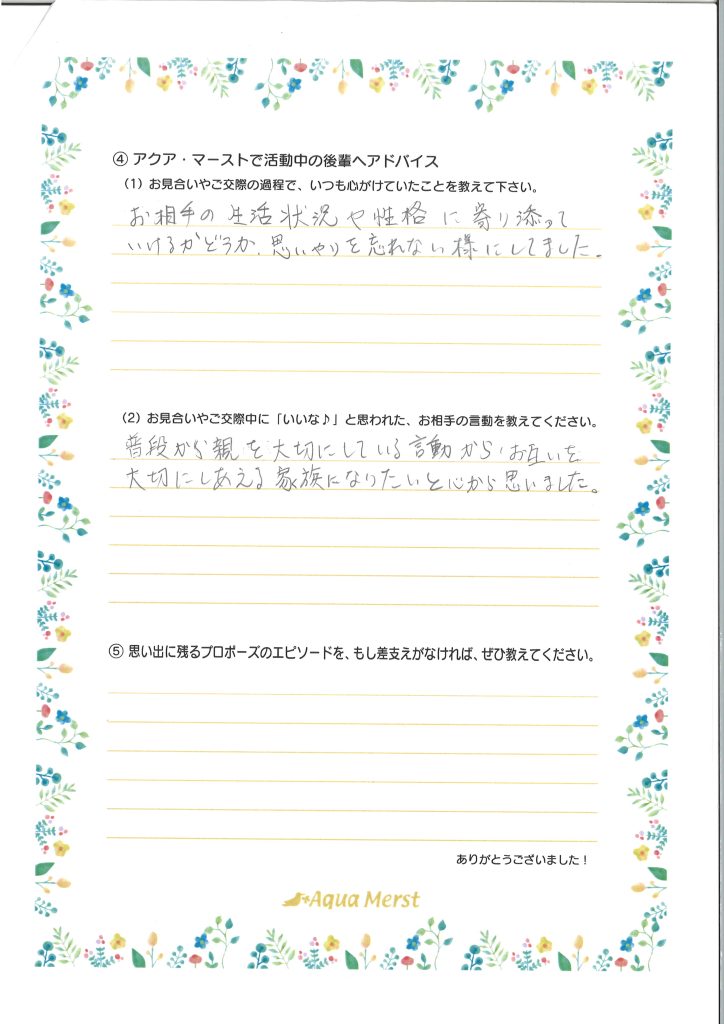 ④ アクア・マーストで活動中の後輩へアドバイス
（1）お見合いやご交際の過程で、いつも心がけていたことを教えて下さい。
お相手の生活状況や性格に寄り添って
いけるかどうか、思いやりを忘れない様にしてました。
（2）お見合いやご交際中に「いいな♪」と思われた、お相手の言動を教えてください。
普段から親を大切にしている言動から、お互いを
大切にしあえる家族になりたいと心から思いました。
⑤ 思い出に残るプロポーズのエピソードを、もし差支えがなければ、ぜひ教えてください。
ありがとうございました！
Aqua Merst